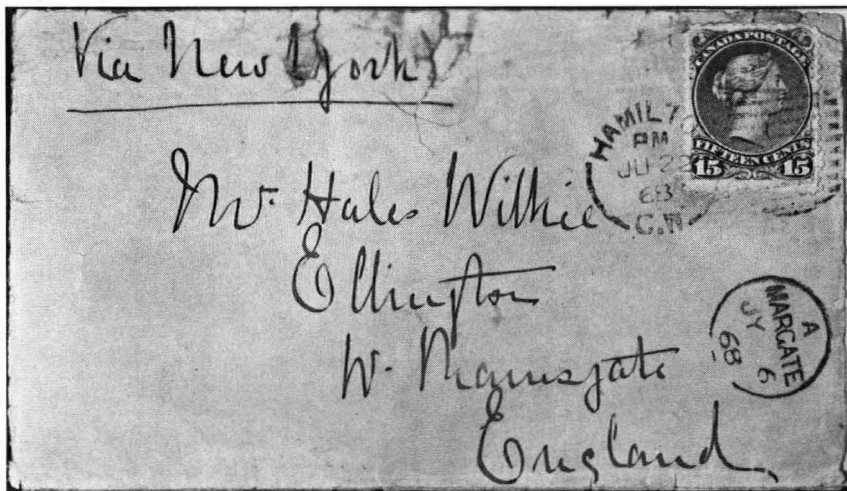 Via New York
CANADA POSTAGE
FIFTEEN CENTS
15 15
HAMILTO
PM
JU 22
68
C.W
Mr. Hales Wilkie
Ellington
W. Ramsgate
England
A
MARGATE
JY 6
68